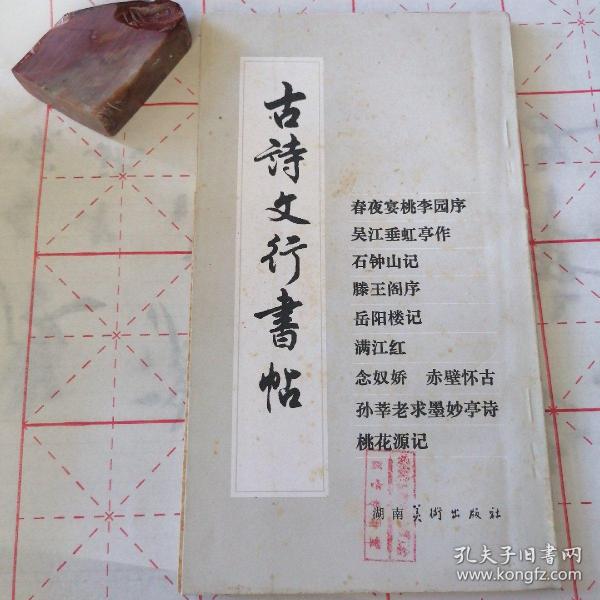 古詩文行書帖
春夜宴桃李园序
吴江垂虹亭作
石钟山记
滕王阁序
岳阳楼记
满江红
念奴娇 赤壁怀古
孙莘老求墨妙亭诗
桃花源记
湖南美術出版社
孔夫子旧书网
www.kongfz.com